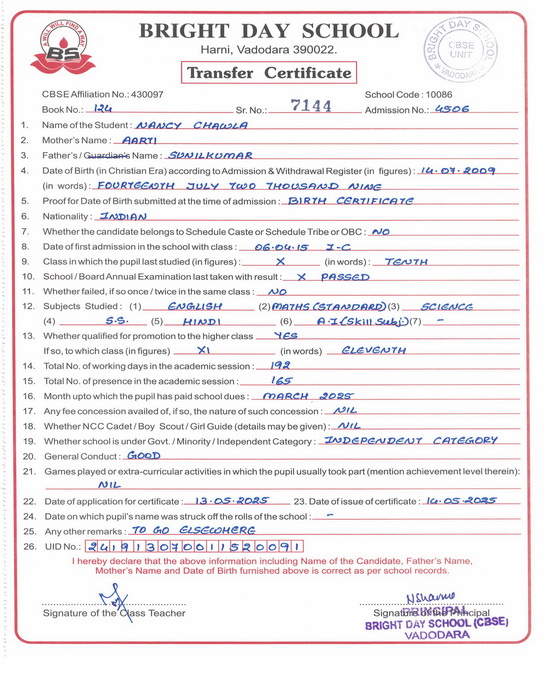 A WILL WILL FIND A WAY
BS
BRIGHT DAY SCHOOL
Harni, Vadodara 390022.
Transfer Certificate
BRIGHT DAY SCHOOL
CBSE
UNIT
VADODARA
CBSE Affiliation No.: 430097 School Code : 10086
Book No.: 124 Sr. No.: 7144 Admission No.: 4506
1. Name of the Student : NANCY CHAWLA
2. Mother's Name : AARTI
3. Father's / Guardian's Name : SUNILKUMAR
4. Date of Birth (in Christian Era) according to Admission & Withdrawal Register (in figures) : 14.07.2009
(in words) : FOURTEENTH JULY TWO THOUSAND NINE
5. Proof for Date of Birth submitted at the time of admission : BIRTH CERTIFICATE
6. Nationality : INDIAN
7. Whether the candidate belongs to Schedule Caste or Schedule Tribe or OBC : NO
8. Date of first admission in the school with class : 06.04.15 I-C
9. Class in which the pupil last studied (in figures) : X (in words) : TENTH
10. School / Board Annual Examination last taken with result : X PASSED
11. Whether failed, if so once / twice in the same class : NO
12. Subjects Studied : (1) ENGLISH (2) MATHS (STANDARD) (3) SCIENCE
(4) S.S. (5) HINDI (6) A.I (Skill Subj.) (7) -
13. Whether qualified for promotion to the higher class YES
If so, to which class (in figures) XI (in words) ELEVENTH
14. Total No. of working days in the academic session : 192
15. Total No. of presence in the academic session : 165
16. Month upto which the pupil has paid school dues : MARCH 2025
17. Any fee concession availed of, if so, the nature of such concession : NIL
18. Whether NCC Cadet / Boy Scout / Girl Guide (details may be given) : NIL
19. Whether school is under Govt. / Minority / Independent Category : INDEPENDENT CATEGORY
20. General Conduct : GOOD
21. Games played or extra-curricular activities in which the pupil usually took part (mention achievement level therein):
NIL
22. Date of application for certificate : 13.05.2025 23. Date of issue of certificate : 14.05.2025
24. Date on which pupil's name was struck off the rolls of the school : -
25. Any other remarks : TO GO ELSEWHERE
26. UID No.: 241913070011520091
I hereby declare that the above information including Name of the Candidate, Father's Name,
Mother's Name and Date of Birth furnished above is correct as per school records.
Signature of the Class Teacher Signature of the Principal
PRINCIPAL
BRIGHT DAY SCHOOL (CBSE)
VADODARA